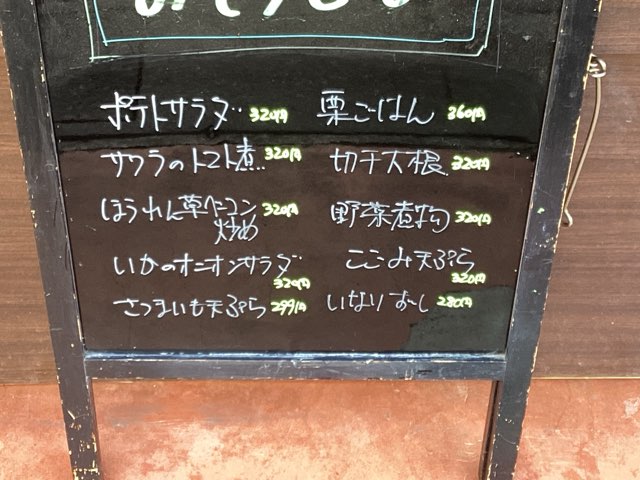 ポテトサラダ 320円
サワラのトマト煮 320円
ほうれん草ベーコン
炒め 320円
いかのオニオンサラダ
320円
さつまいも天ぷら 299円
栗ごはん 360円
切干大根 320円
野菜煮物 320円
ここみ天ぷら
320円
いなりずし 280円